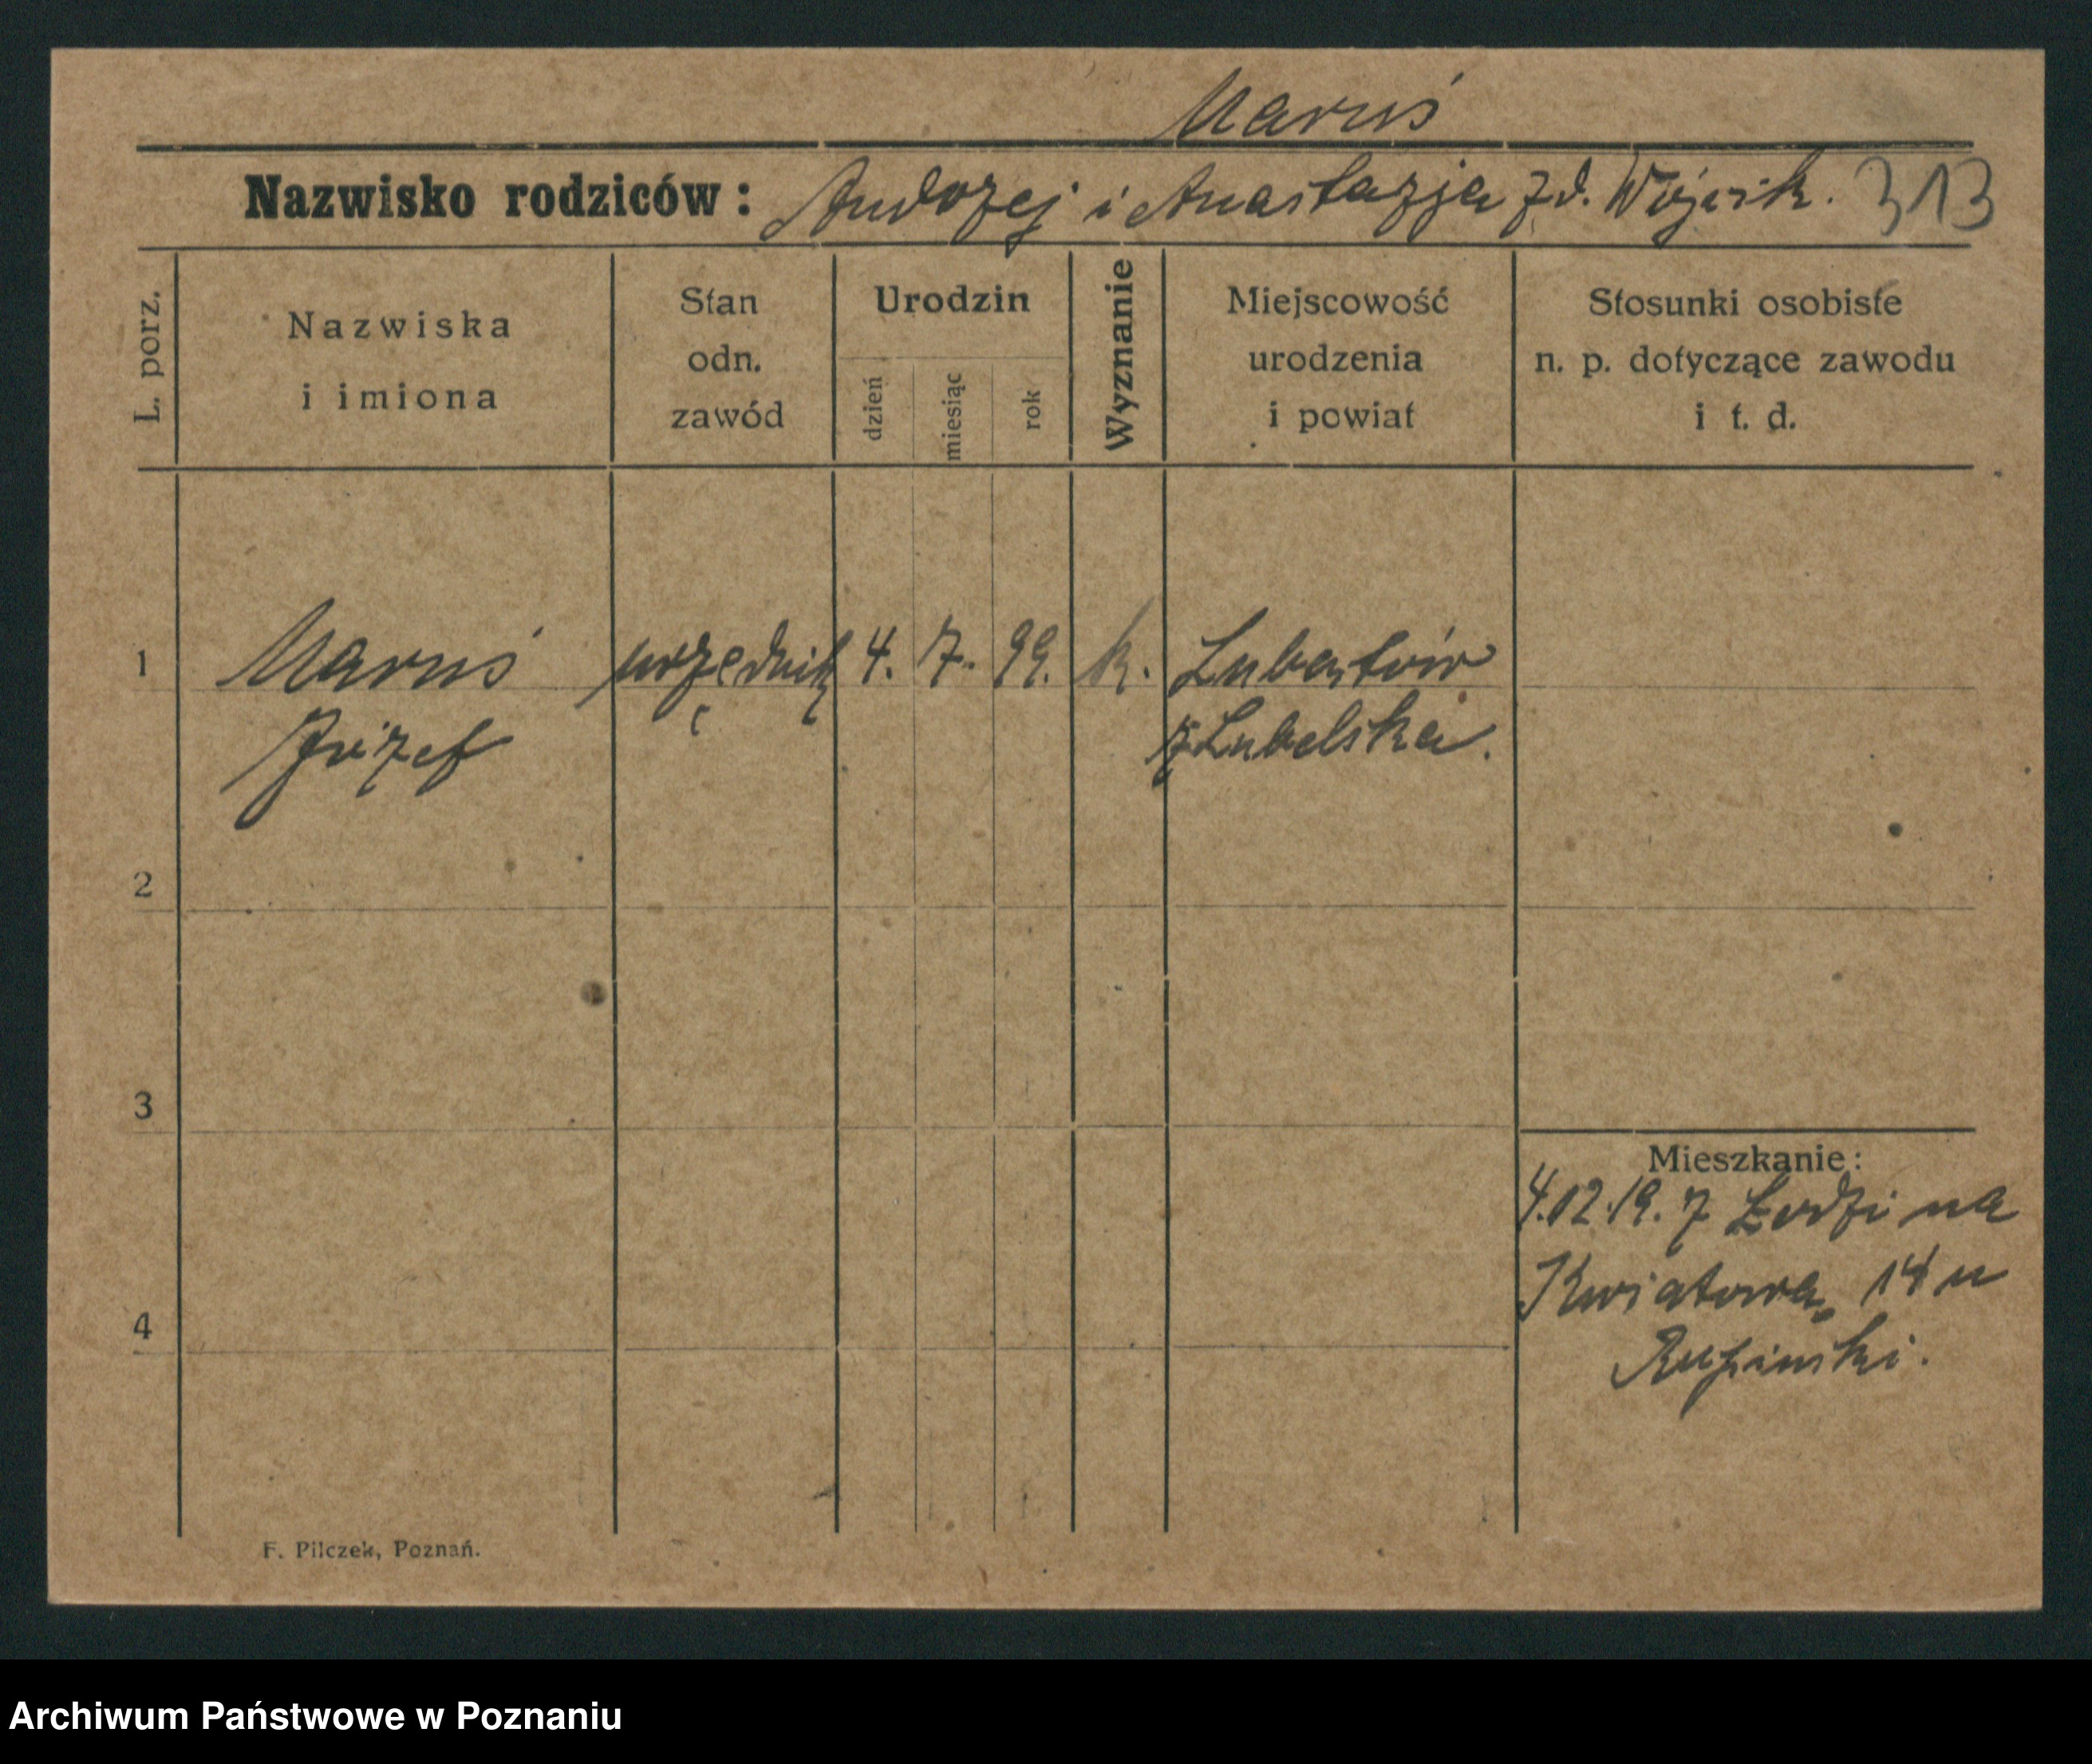 Maruś
Nazwisko rodziców: Andrzej i Anastazja z d. Wójcik. 313
L. porz.
Nazwiska
i imiona
Stan
odn.
zawód
Urodzin
dzień
miesiąc
rok
Wyznanie
Miejscowość
urodzenia
i powiat
Stosunki osobiste
n. p. dotyczące zawodu
i t. d.
1 Maruś urzędnik 4. 7. 99. k. Lubartów
Józef z. Lubelska.
2
3
Mieszkanie:
4.12.19. z Łodzi na
Kwiatowa 14 u
4
F. Pilczek, Poznań.
Archiwum Państwowe w Poznaniu